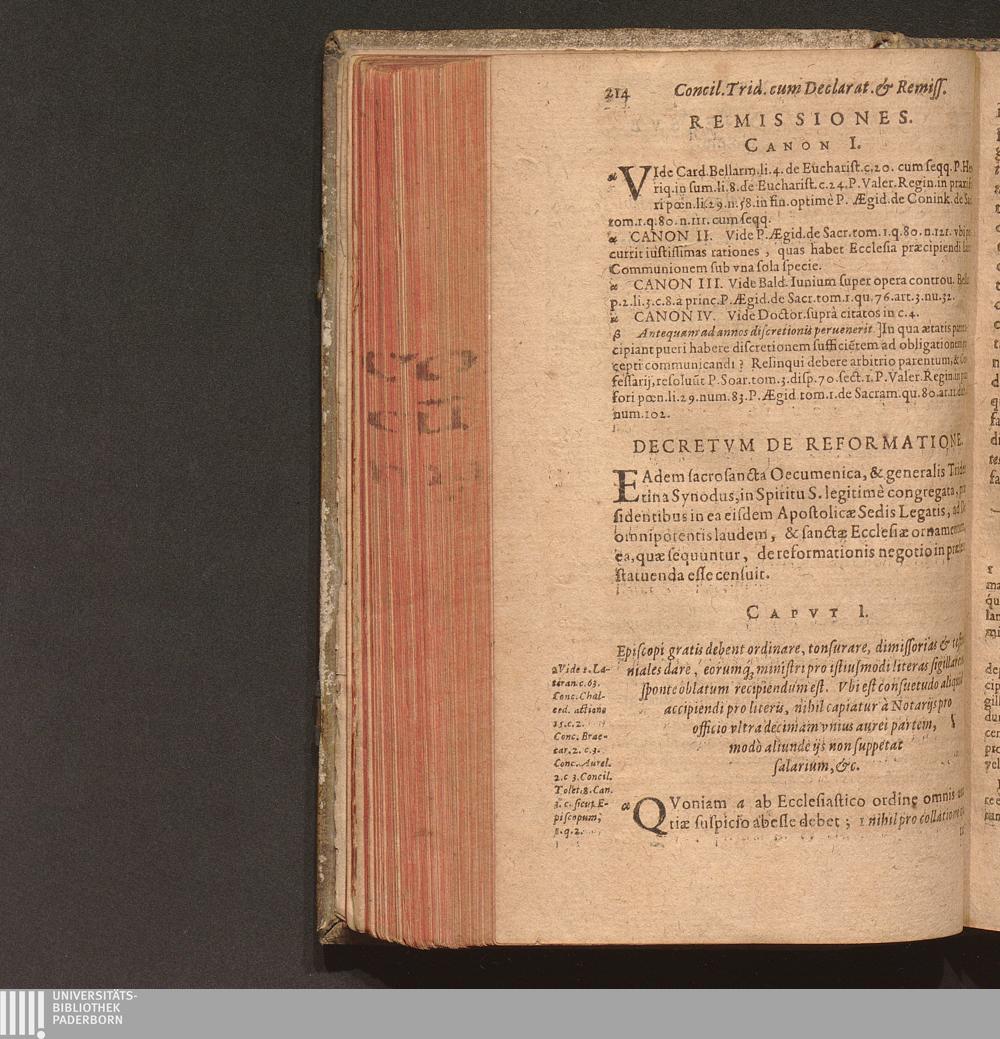 214 Concil. Trid. cum Declarat. & Remiſſ.
REMISSIONES.
CANON I.
α VIde Card. Bellarm. li. 4. de Euchariſt. c. 20. cum ſeqq. P.
riq. in ſum. li. 8. de Euchariſt. c. 24. P. Valer. Regin. in
ri pœn. li. 29. n. 58. in fin. optimè P. Ægid. de Conink. de
tom. 1. q. 80. n. 111. cum ſeqq.
α CANON II. Vide P. Ægid. de Sacr. tom. 1. q. 80. n. 121. vbi
currit iuſtiſſimas rationes, quas habet Eccleſia præcipiendi
Communionem ſub vna ſola ſpecie.
α CANON III. Vide Bald. Iunium ſuper opera controu.
p. 2. li. 3. c. 8. à princ. P. Ægid. de Sacr. tom. 1. qu. 76. art. 3. nu. 32.
α CANON IV. Vide Doctor. ſuprà citatos in c. 4.
β Antequam ad annos diſcretionis peruenerit. ]In qua ætatis
cipiant pueri habere diſcretionem ſufficiẽtem ad obligationem
cepti communicandi? Relinqui debere arbitrio parentum, &
feſſarij, reſoluũt P. Soar. tom. 3. diſp. 70. ſect. 1. P. Valer. Regin. in
fori pœn. li. 29. num. 83. P. Ægid. tom. 1. de Sacram. qu. 80. ar. 11.
num. 102.
DECRETVM DE REFORMATIONE.
EAdem ſacroſancta Oecumenica, & generalis
tina Synodus, in Spiritu S. legitimè congregata,
ſidentibus in ea eiſdem Apoſtolicæ Sedis Legatis, ad
omnipotentis laudem, & ſanctæ Eccleſiæ
ea, quæ ſequuntur, de reformationis negotio in
ſtatuenda eſſe cenſuit.
CAPVT I.
Epiſcopi gratis debent ordinare, tonſurare, dimiſſorias &
niales dare, eorumq́; miniſtri pro iſtiuſmodi literas
ſponte oblatum recipiendum eſt. Vbi eſt conſuetudo
accipiendi pro literis, nihil capiatur à Notarijs pro
officio vltra decimam vnius aurei partem,
modò aliunde ijs non ſuppetat
ſalarium, &c.
a Vide 1. La-
teran. c. 63.
Conc. Chal-
ced. actione
15. c. 2.
Conc. Brac-
car. 2. c. 3.
Conc. Aurel.
2. c 3. Concil.
Tolet. 8. Can.
3. c. ſicut E-
piſcopum,
1. q. 2.
α QVoniam a ab Eccleſiaſtico ordine omnis
tiæ ſuſpicio abeſſe debet; 1 nihil pro
UNIVERSITÄTS-
BIBLIOTHEK
PADERBORN